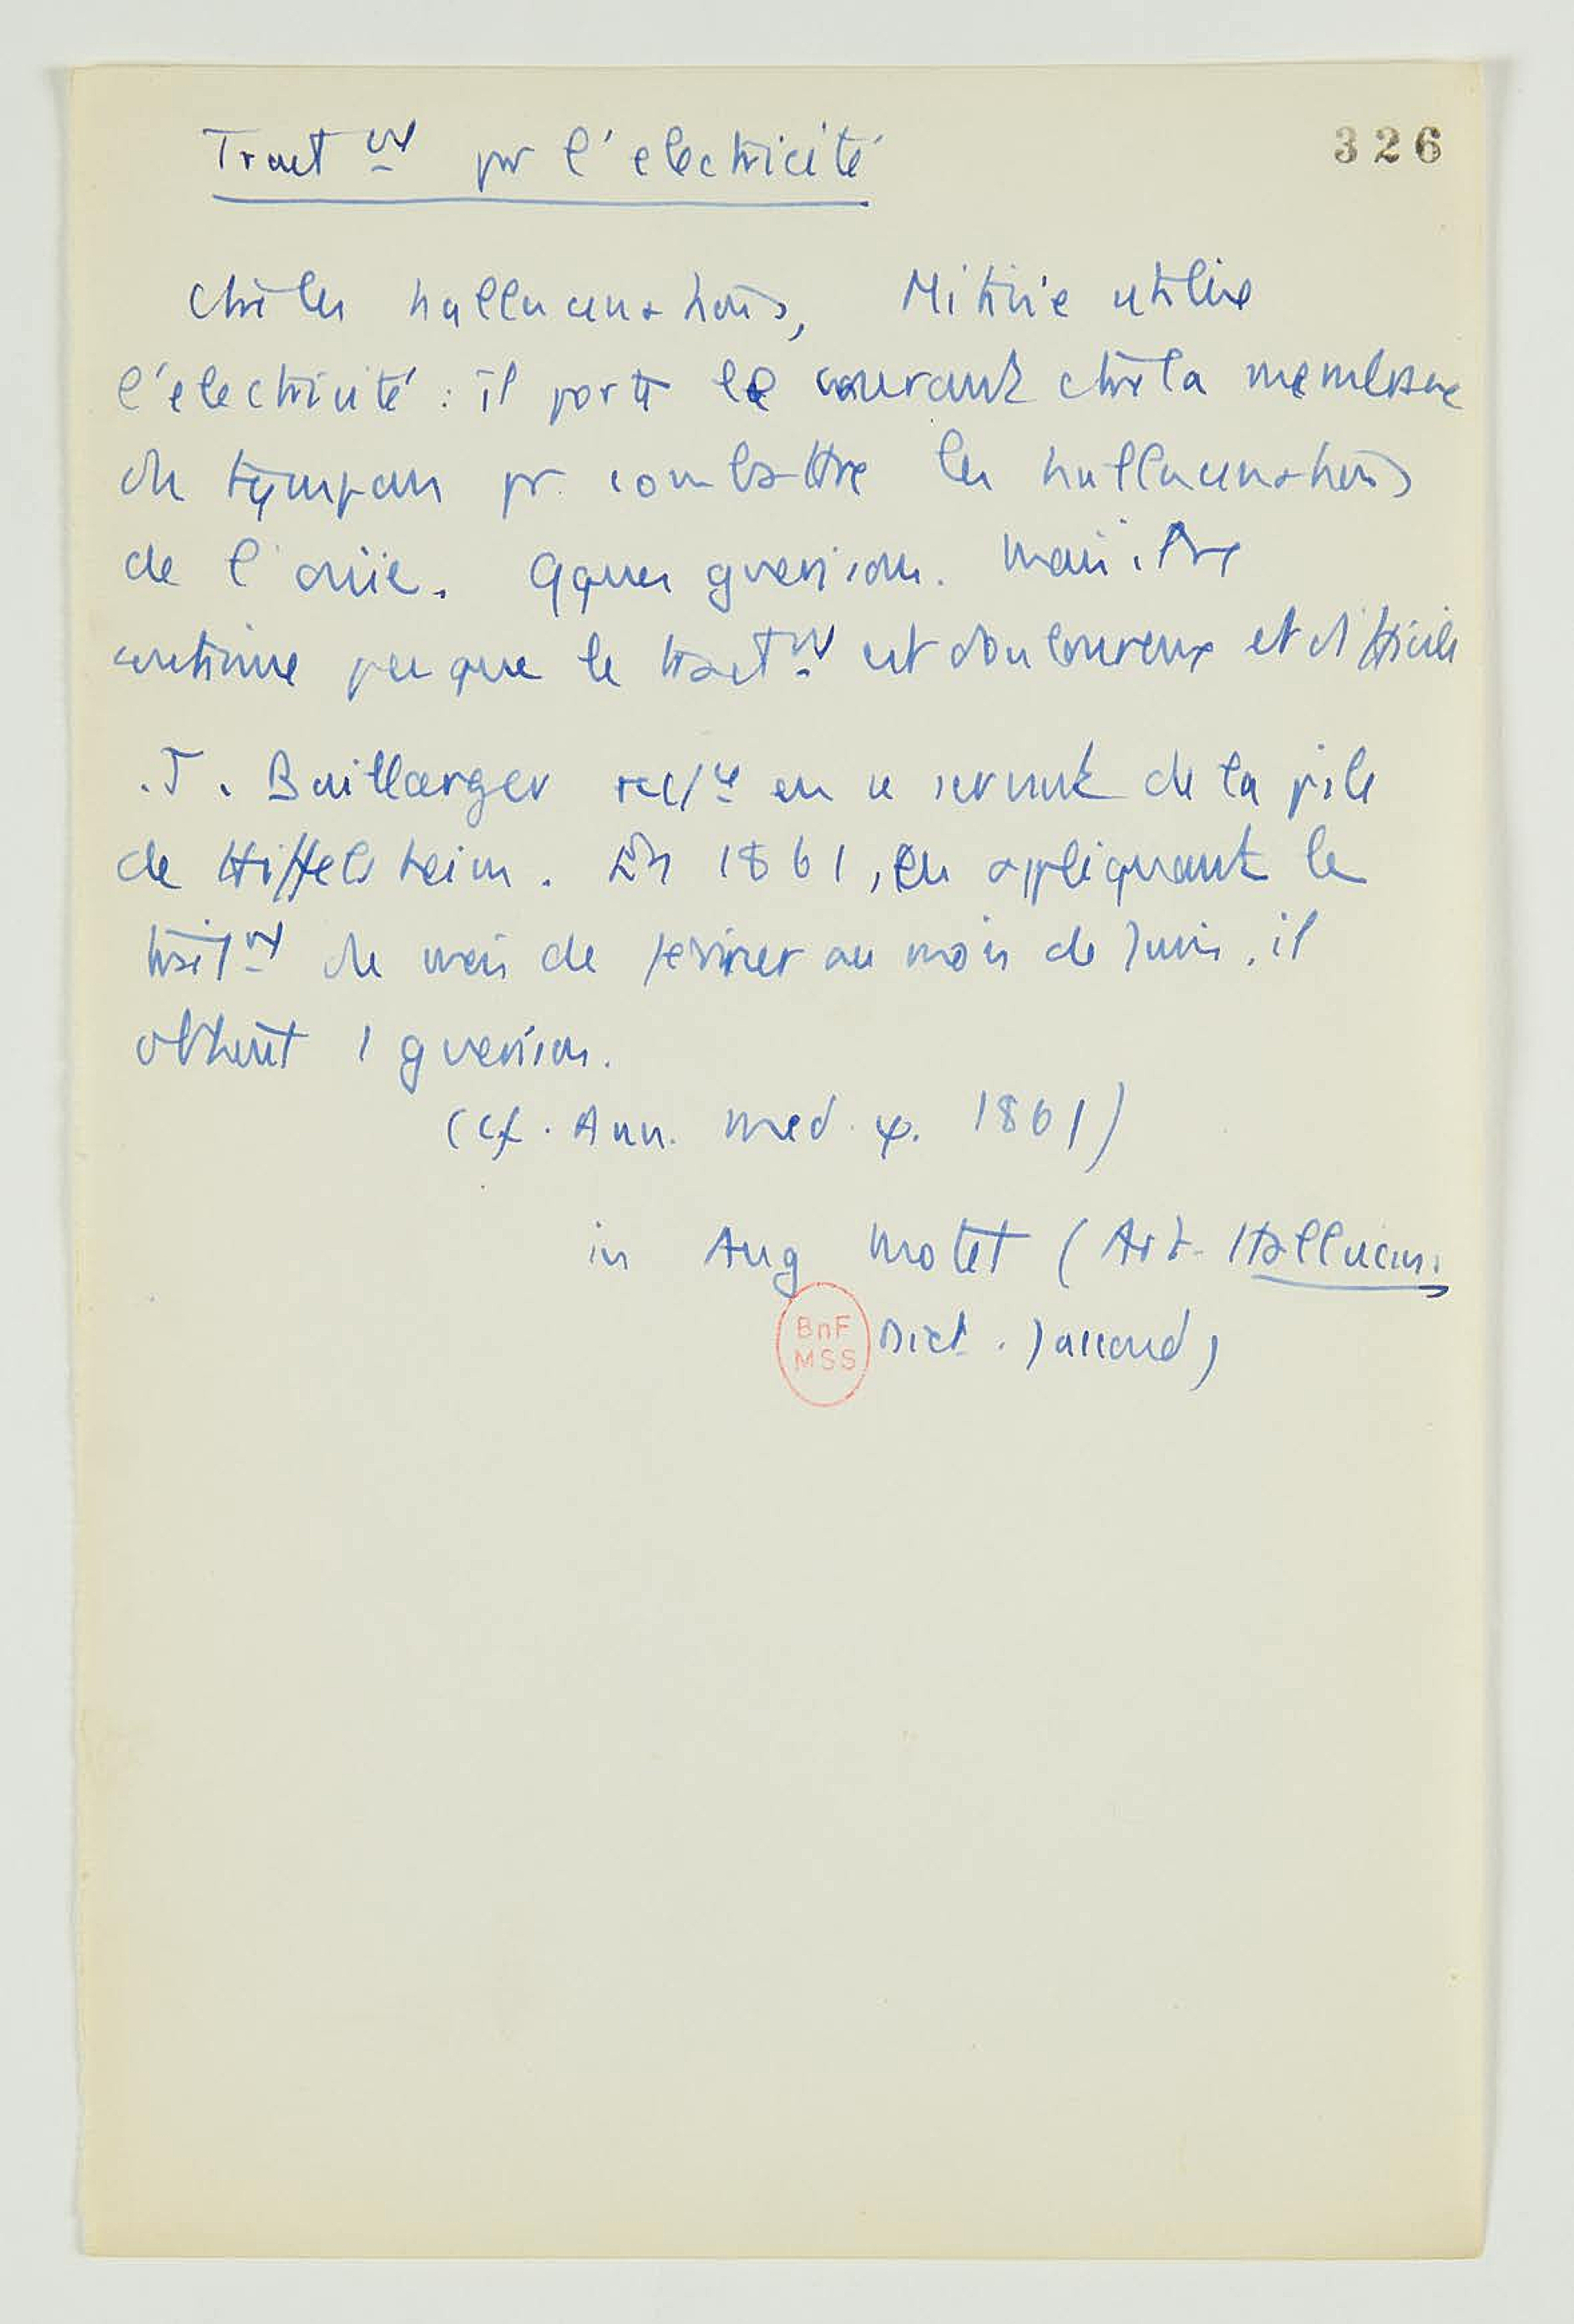 Trait nt par l'électricité
326
ctre les hallucinations, Mitivié utilise
l'électricité : il porte le courant ctre la membrane
du tympan pr combattre les hallucinations
de l'ouïe. Qques guérisons. Mais
continue pcq que le trait nt est douloureux et difficile
. J. Baillarger en se servant de la pile
de Hiffelsheim. En 1861, en appliquant le
trait nt du mois de février au mois de Juin, il
obtient 1 guérison.
(cf. Ann. med. ψ. 1861)
in Aug Motet (Art. Hallucin.
BnF
MSS
Dict. Jaccoud)